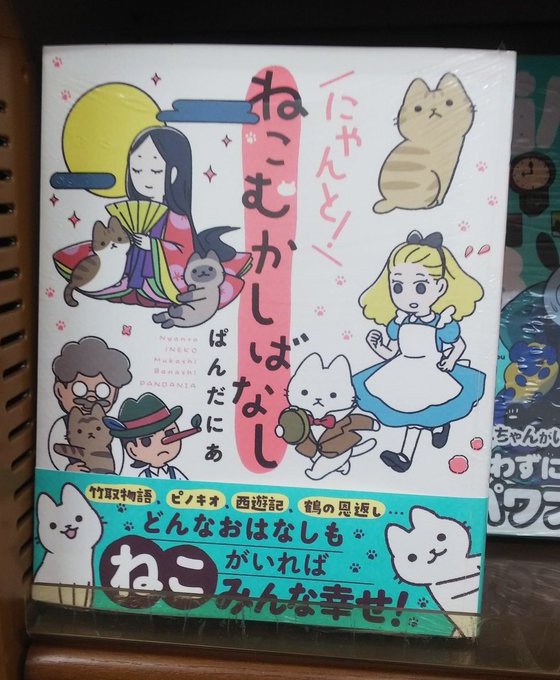 にゃんと!
ねこむかしばなし
ぱんだにあ
Nyanto
!NEKO
Mukashi
Banashi
PANDANIA
竹取物語、ピノキオ、西遊記、鶴の恩返し…
どんなおはなしも
ねこがいれば
みんな幸せ!
ちゃんが
わずに
パワフ